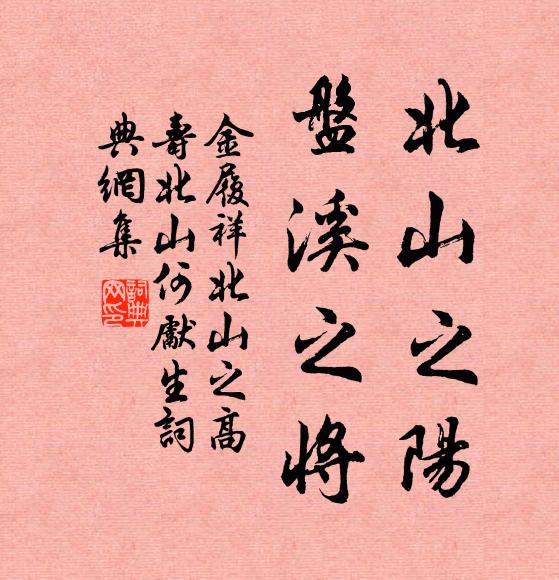 北山之陽
盤溪之將
金履祥北山之高
壽北山何獻生詞
典網集
詞典
网印